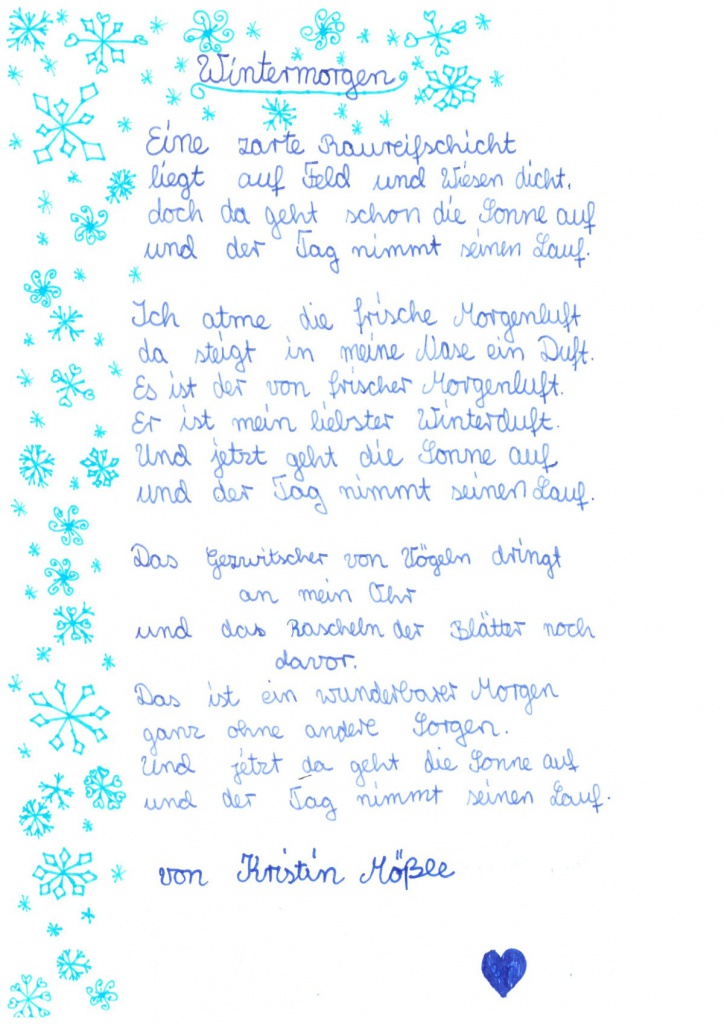 Wintermorgen
Eine zarte Raureifschicht
liegt auf Feld und Wiesen dicht,
doch da geht schon die Sonne auf
und der Tag nimmt seinen Lauf.
Ich atme die frische Morgenluft
da steigt in meine Nase ein Duft.
Es ist der von frischer Morgenluft.
Er ist mein liebster Winterduft.
Und jetzt geht die Sonne auf
und der Tag nimmt seinen Lauf.
Das Gezwitscher von Vögeln dringt
an mein Ohr
und das Rascheln der Blätter noch
davor.
Das ist ein wunderbarer Morgen
ganz ohne andere Sorgen.
Und jetzt da geht die Sonne auf
und der Tag nimmt seinen Lauf.
von Kristin